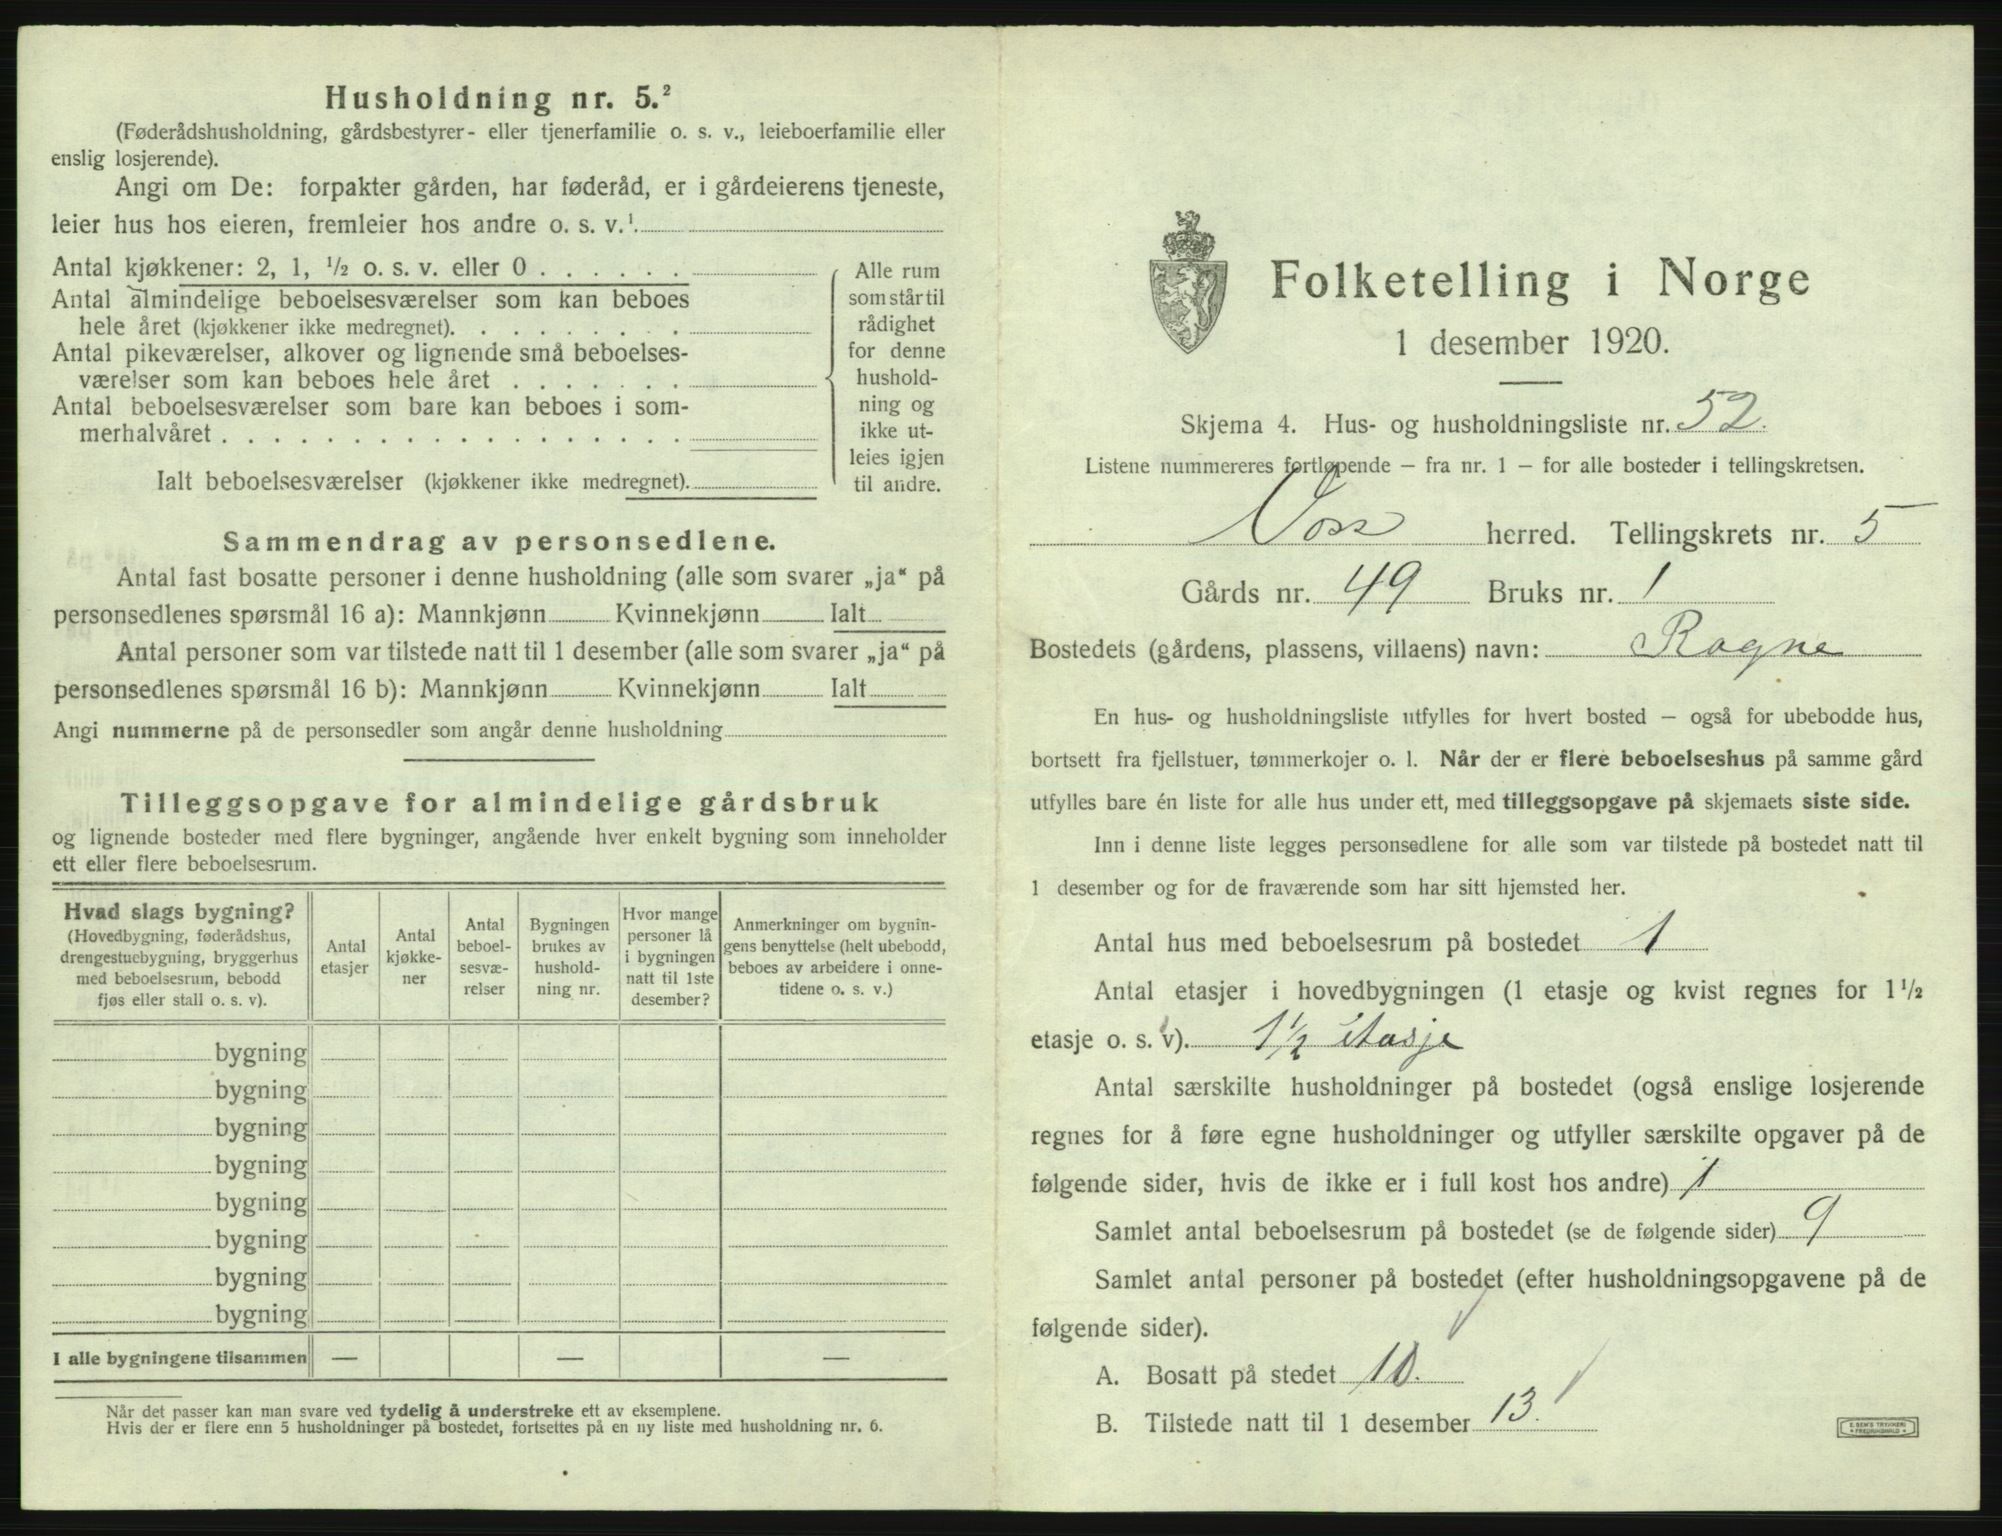 Husholdning nr. 5.²
(Føderådshusholdning, gårdsbestyrer- eller tjenerfamilie o. s. v., leieboerfamilie eller
enslig losjerende).
Angi om De: forpakter gården, har føderåd, er i gårdeierens tjeneste,
leier hus hos eieren, fremleier hos andre o. s. v.¹.
Antal kjøkkener: 2, 1, ½ o. s. v. eller 0 . . . . . .
Antal almindelige beboelsesværelser som kan beboes
hele året (kjøkkener ikke medregnet). . . . . . . . .
Antal pikeværelser, alkover og lignende små beboelses-
værelser som kan beboes hele året . . . . . . .
Antal beboelsesværelser som bare kan beboes i som-
merhalvåret . . . . . . . . . . . . . . . . . .
Ialt beboelsesværelser (kjøkkener ikke medregnet).
Alle rum
som står til
rådighet
for denne
hushold-
ning og
ikke ut-
leies igjen
til andre.
Sammendrag av personsedlene.
Antal fast bosatte personer i denne husholdning (alle som svarer „ja“ på
personsedlenes spørsmål 16 a): Mannkjønn Kvinnekjønn Ialt
Antal personer som var tilstede natt til 1 desember (alle som svarer „ja“ på
personsedlenes spørsmål 16 b): Mannkjønn Kvinnekjønn Ialt
Angi nummerne på de personsedler som angår denne husholdning
Tilleggsopgave for almindelige gårdsbruk
og lignende bosteder med flere bygninger, angående hver enkelt bygning som inneholder
ett eller flere beboelsesrum.
Hvad slags bygning?
(Hovedbygning, føderådshus,
drengestuebygning, bryggerhus
med beboelsesrum, bebodd
fjøs eller stall o. s. v).
Antal
etasjer
Antal
kjøkke-
ner
Antal
beboel-
sesvæ-
relser
Bygningen
brukes av
hushold-
ning nr.
Hvor mange
personer lå
i bygningen
natt til 1ste
desember?
Anmerkninger om bygnin-
gens benyttelse (helt ubebodd,
beboes av arbeidere i onne-
tidene o. s. v.)
bygning
bygning
bygning
bygning
bygning
bygning
bygning
bygning
I alle bygningene tilsammen — — —
Når det passer kan man svare ved tydelig å understreke ett av eksemplene.
Hvis der er flere enn 5 husholdninger på bostedet, fortsettes på en ny liste med husholdning nr. 6.
Folketelling i Norge
1 desember 1920.
Skjema 4. Hus- og husholdningsliste nr. 52.
Listene nummereres fortløpende – fra nr. 1 – for alle bosteder i tellingskretsen.
Voss herred. Tellingskrets nr. 5
Gårds nr. 49 Bruks nr. 1
Bostedets (gårdens, plassens, villaens) navn: Rogne
En hus- og husholdningsliste utfylles for hvert bosted – også for ubebodde hus,
bortsett fra fjellstuer, tømmerkojer o. l. Når der er flere beboelseshus på samme gård
utfylles bare én liste for alle hus under ett, med tilleggsopgave på skjemaets siste side.
Inn i denne liste legges personsedlene for alle som var tilstede på bostedet natt til
1 desember og for de fraværende som har sitt hjemsted her.
Antal hus med beboelsesrum på bostedet 1
Antal etasjer i hovedbygningen (1 etasje og kvist regnes for 1½
etasje o. s. v). 1½ etasje
Antal særskilte husholdninger på bostedet (også enslige losjerende
regnes for å føre egne husholdninger og utfyller særskilte opgaver på de
følgende sider, hvis de ikke er i full kost hos andre) 1
Samlet antal beboelsesrum på bostedet (se de følgende sider) 9
Samlet antal personer på bostedet (efter husholdningsopgavene på de
følgende sider).
A. Bosatt på stedet 10.
B. Tilstede natt til 1 desember 13.
E. SEM'S TRYKKERI
FREDRIKSHALD